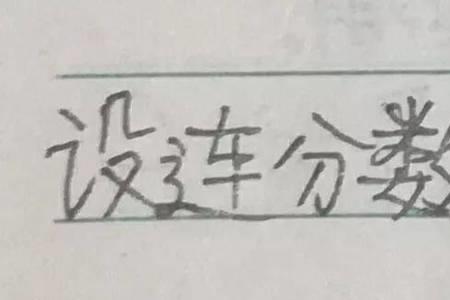 设连分数